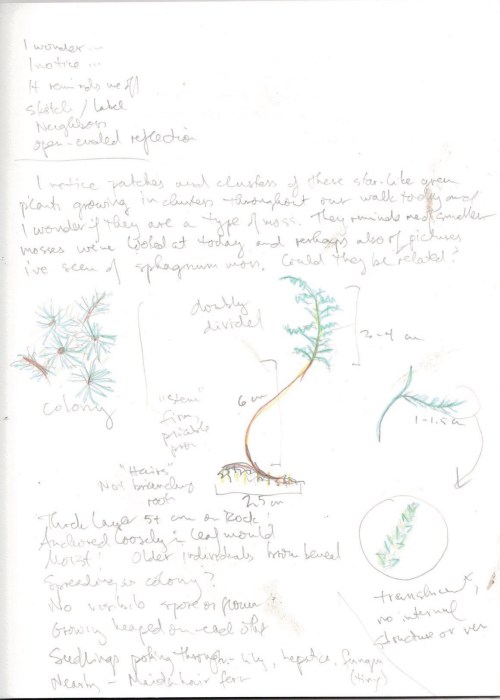 I wonder...
I notice...
It reminds me of
sketch / label
Neighbors
open-ended reflection
I notice patches and clusters of these star-like green
plants growing in clusters throughout our walk today and
I wonder if they are a type of moss. They remind me of smaller
mosses we've looked at today and perhaps also of pictures
i've seen of sphagnum moss. Could they be related?
doubly
divided
3-4 cm
colony
6 cm
"stem"
firm,
pliable
1-1.5 cm
"Hairs"
Not branching
roots
25 cm
Thick layer 5+ cm on Rock!
Anchored loosely in leaf mould
Moist! Older individuals brown beneath
Spreading in colony?
No visible spore or flower
Growing heaped on each other
Seedlings poking through - lily, hepatica,
(tiny)
Nearby - Maidenhair fern
translucent,
no internal
structure or